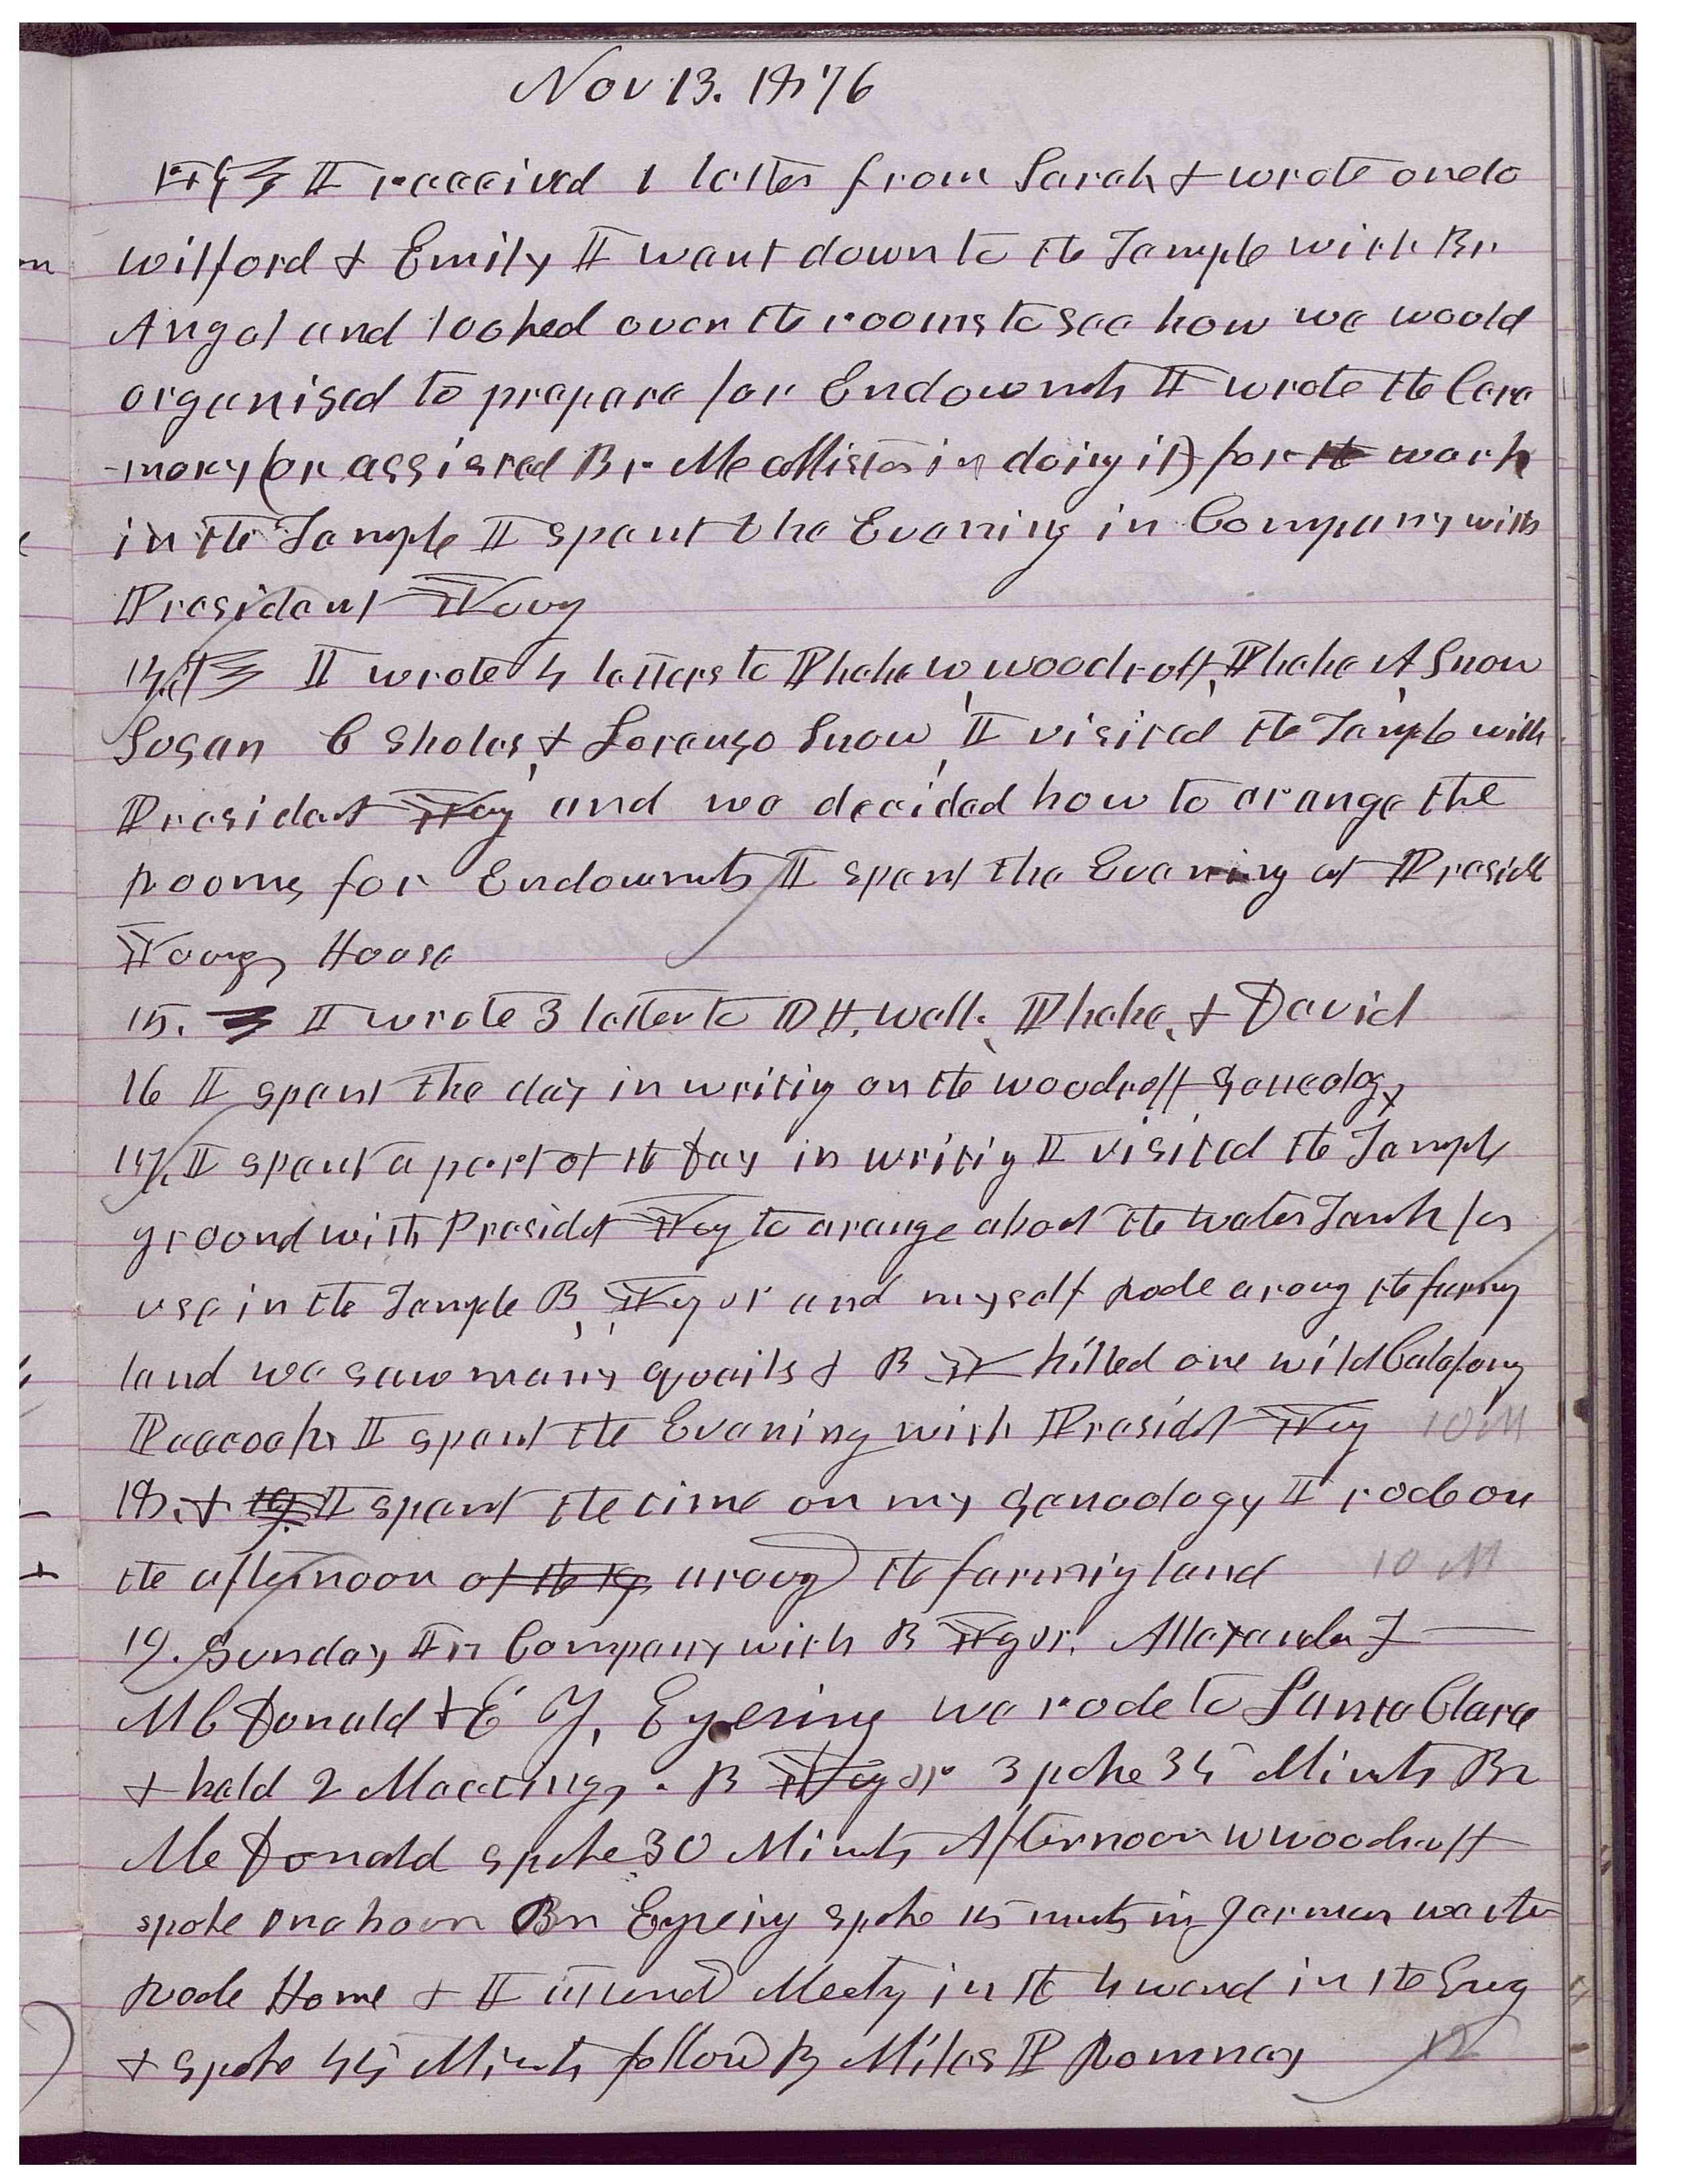 Nov 13. 1876
I received 1 letter from Sarah & wrote one to
Wilford & Emily I went down to the Temple with Br
Angel and looked over the rooms to see how we would
organised to prepare for Endowmts I wrote the Cere
-mony (or assisted Br McAllister in doing it) for the work
in the Temple I spent the Evening in Company with
President Young
14. I wrote 4 letters to Phebe W Woodruff, Phebe A Snow
Susan C Sholes, & Lorenzo Snow, I visited the Temple with
Presidet Yog and we decided how to arange the
rooms for Endowmts I spent the Evening at Presidt
Youngs House
15. I wrote 3 letter to D H. Wells Phebe, & David
16 I spent the day in writig on the Woodruff Genealogy
17. I spent a part of the Day in writig I visited the Temple
ground with Presidet Yog to arange about the water Tank for
use in the Temple B, Yog jr and myself rode aroug the farmg
land we saw many quails & B Y killed one wild Calaforny
Peacock I spent the Evening with Presidt Yog 10 M
18. & 19. I spent the time on my Geneology I rode on
the afternoon of the 19 aroug the farmig land 10 M
19. Sunday In Company with B Yog jr. Allexander F
McDonald & E Y. Eyering we rode to Santa Clara
& held 2 Meetings. B Yog jr spoke 35 Minuts Br
McDonald spoke 30 Minuts Afternoon W Woodruff
spoke one hour Br Eyering spoke 15 mnts in German we then
rode Home & I attend Meetg in the 4 ward in the Eveg
& spoke 45 Minuts followd By Miles P Romney 12